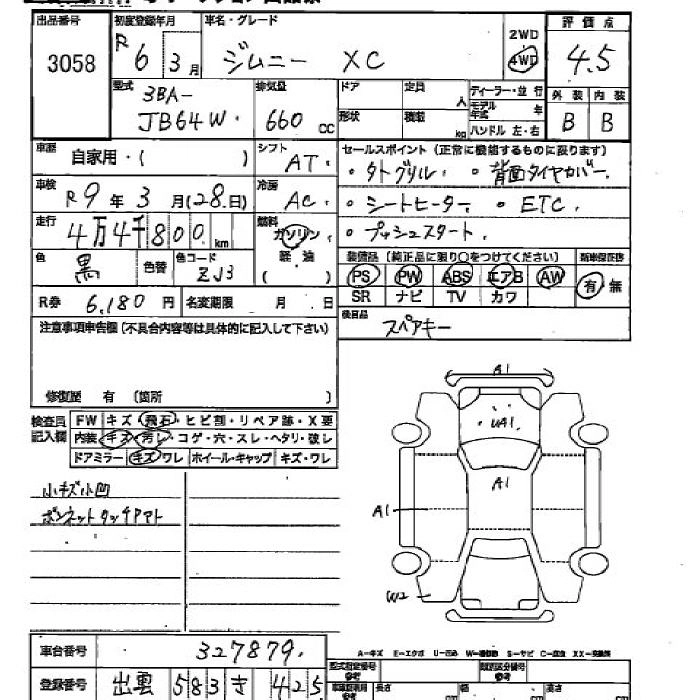 出品番号
3058
初度登録年月
R6 3月
車名・グレード
ジムニー XC
2WD
4WD
評価点
4.5
型式
3BA-
JB64W
排気量
660 cc
ドア
形状
定員 人
積載 kg
ディーラー・並行
モデル年式 年
ハンドル 左・右
外装 内装
B B
車歴
自家用・( )
シフト
AT
車検
R9年3月(28日)
冷房
AC
走行
4万4千800 km
燃料
ガソリン
軽油
( )
色
黒
色替
色コード
ZJ3
R券 6,180 円
名変期限 月 日
セールスポイント (正常に機能するものに限ります)
・タトグリル ・背面タイヤカバー
・シートヒーター ・ETC
・プッシュスタート
装備品 (純正品に限り○をつけてください)
新車保証書
PS PW ABS エアB AW
有・無
SR ナビ TV カワ
後日品
スペアキー
注意事項申告欄 (不具合内容等は具体的に記入して下さい)
修復歴 有 (箇所 )
検査員記入欄
FW キズ・飛石・ヒビ割・リペア跡・X要
内装 キズ・汚レ・コゲ・穴・スレ・ヘタリ・破レ
ドアミラー キズ・ワレ ホイール・キャップ キズ・ワレ
小キズ小凹
ボンネットタッチアト
A1
UA1
A1
A1
W2
車台番号 327879
登録番号 出雲 583 き 425
A-キズ E-エクボ U-凹み W-補修跡 S-サビ C-腐食 XX-交換済
型式指定番号
類別区分番号
参考
長さ cm
幅 cm
高さ cm